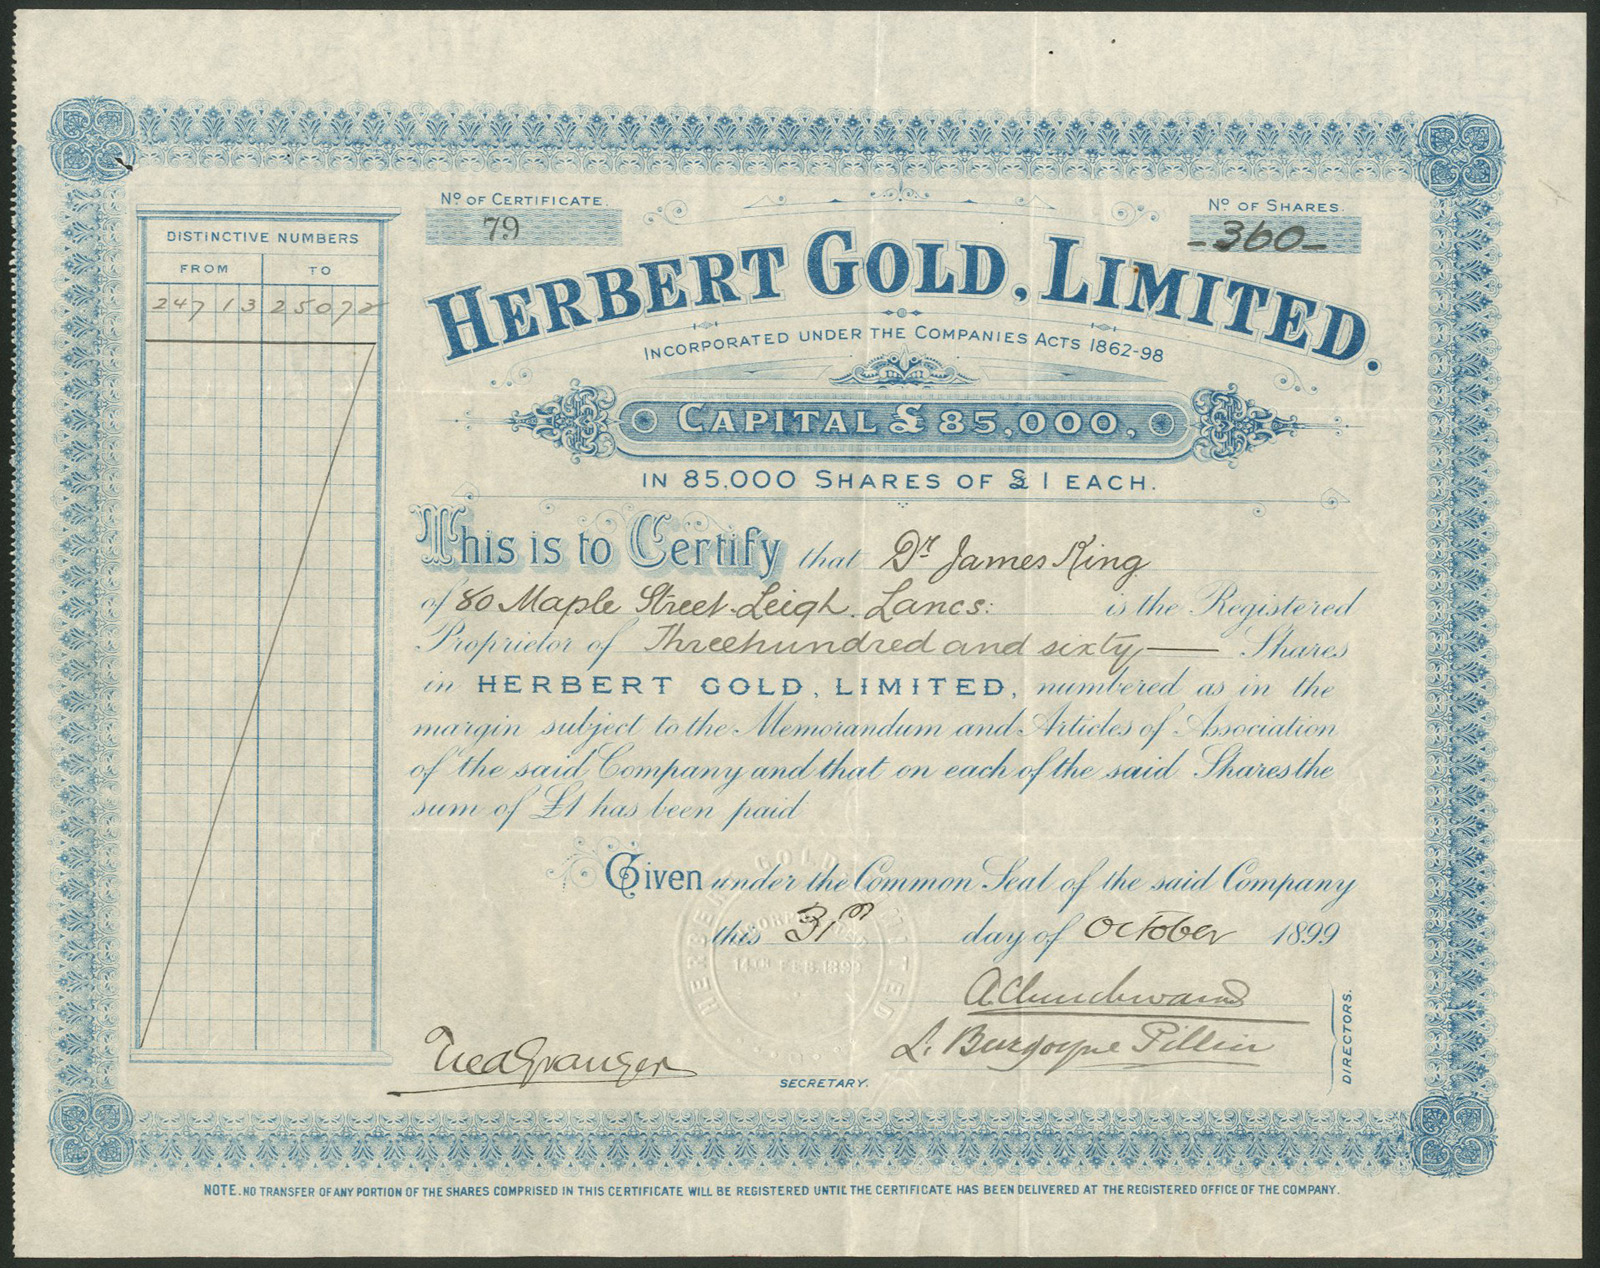 No OF CERTIFICATE.
79
No OF SHARES.
-360-
DISTINCTIVE NUMBERS
FROM TO
24713 25072
HERBERT GOLD, LIMITED.
INCORPORATED UNDER THE COMPANIES ACTS 1862-98
CAPITAL £85,000,
IN 85,000 SHARES OF £1 EACH.
This is to Certify that Dr James King
of 80 Maple Street Leigh. Lancs: is the Registered
Proprietor of Three hundred and sixty — Shares
in HERBERT GOLD, LIMITED, numbered as in the
margin subject to the Memorandum and Articles of Association
of the said Company and that on each of the said Shares the
sum of £1 has been paid
Given under the Common Seal of the said Company
this 31st day of October 1899
HERBERT GOLD LIMITED
INCORPORATED
14TH FEB. 1899
L. Burgoyne Pillin
DIRECTORS.
Granger
SECRETARY.
NOTE. NO TRANSFER OF ANY PORTION OF THE SHARES COMPRISED IN THIS CERTIFICATE WILL BE REGISTERED UNTIL THE CERTIFICATE HAS BEEN DELIVERED AT THE REGISTERED OFFICE OF THE COMPANY.